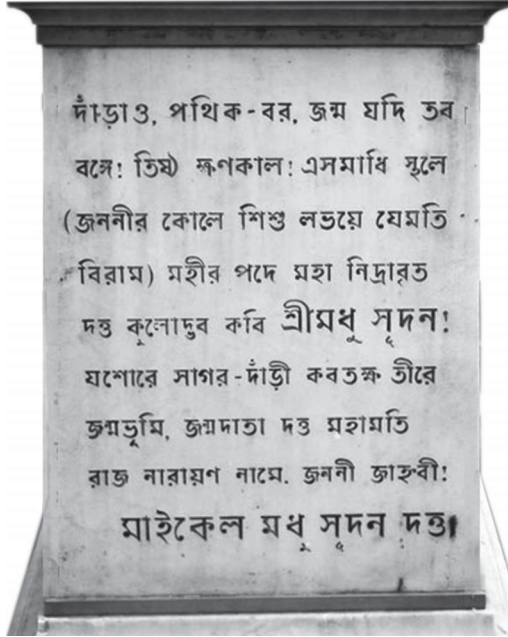 দাঁড়াও, পথিক-বর, জন্ম যদি তব
বঙ্গে! তিষ্ঠ ক্ষণকাল! এসমাধি স্থলে
(জননীর কোলে শিশু লভয়ে যেমতি
বিরাম) মহীর পদে মহা নিদ্রাবৃত
দত্ত কুলোদ্ভব কবি শ্রীমধুসূদন!
যশোরে সাগর-দাঁড়ী কবতক্ষ তীরে
জন্মভূমি, জন্মদাতা দত্ত মহামতি
রাজ নারায়ণ নামে, জননী জাহ্নবী!
মাইকেল মধুসূদন দত্ত।